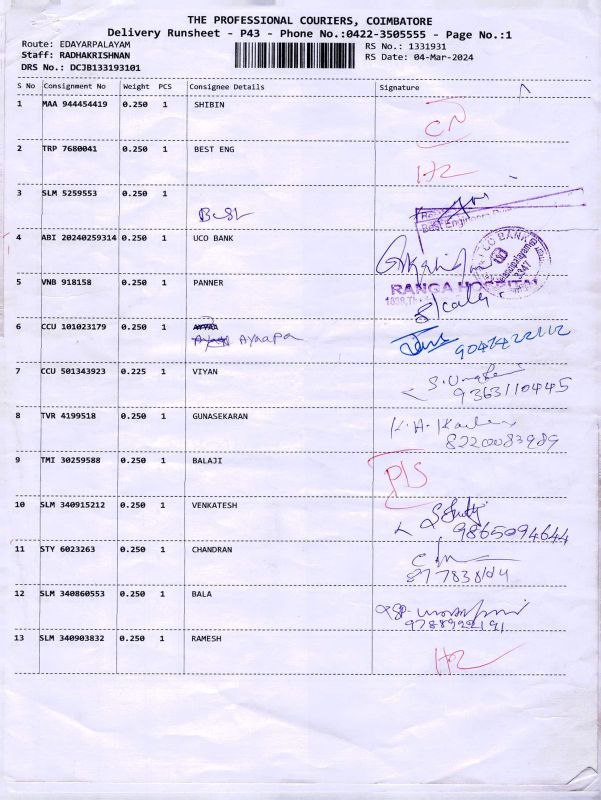 THE PROFESSIONAL COURIERS, COIMBATORE
Delivery Runsheet - P43 - Phone No.:0422-3505555 - Page No.:1
Route: EDAYARPALAYAM RS No.: 1331931
Staff: RADHAKRISHNAN RS Date: 04-Mar-2024
DRS No.: DCJB133193101
S No Consignment No Weight PCS Consignee Details Signature
1 MAA 944454419 0.250 1 SHIBIN
CN
2 TRP 7680041 0.250 1 BEST ENG
HL
3 SLM 5259553 0.250 1
Best
Best Engineers
4 ABI 20240259314 0.250 1 UCO BANK
UCO BANK
5 VNB 918158 0.250 1 PANNER
RANGA HOSPITAL
6 CCU 101023179 0.250 1 AYAAPA
7 CCU 501343923 0.225 1 VIYAN
9363110445
8 TVR 4199518 0.250 1 GUNASEKARAN
8220083989
9 TMI 30259588 0.250 1 BALAJI
PLS
10 SLM 340915212 0.250 1 VENKATESH
9865094644
11 STY 6023263 0.250 1 CHANDRAN
12 SLM 340860553 0.250 1 BALA
9788922191
13 SLM 340903832 0.250 1 RAMESH
HL